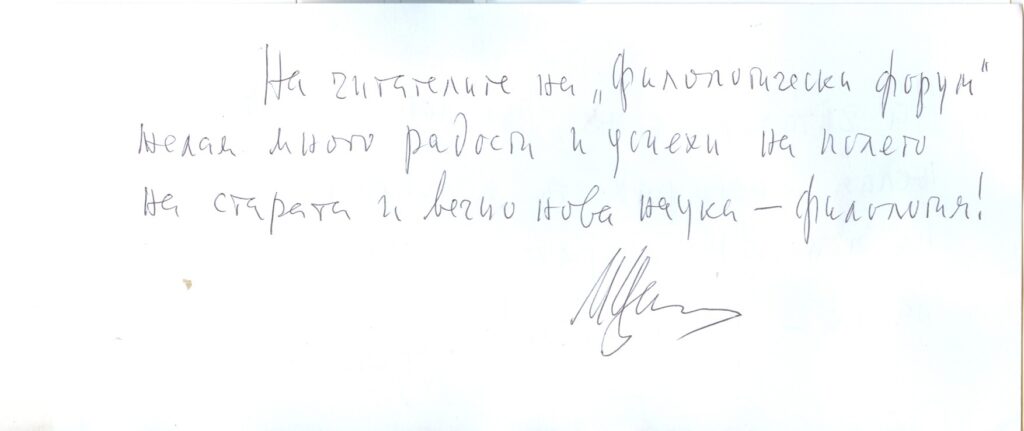 На читателите на „Филологически форум“
желая много радости и успехи на полето
на старата и вечно нова наука – филология!